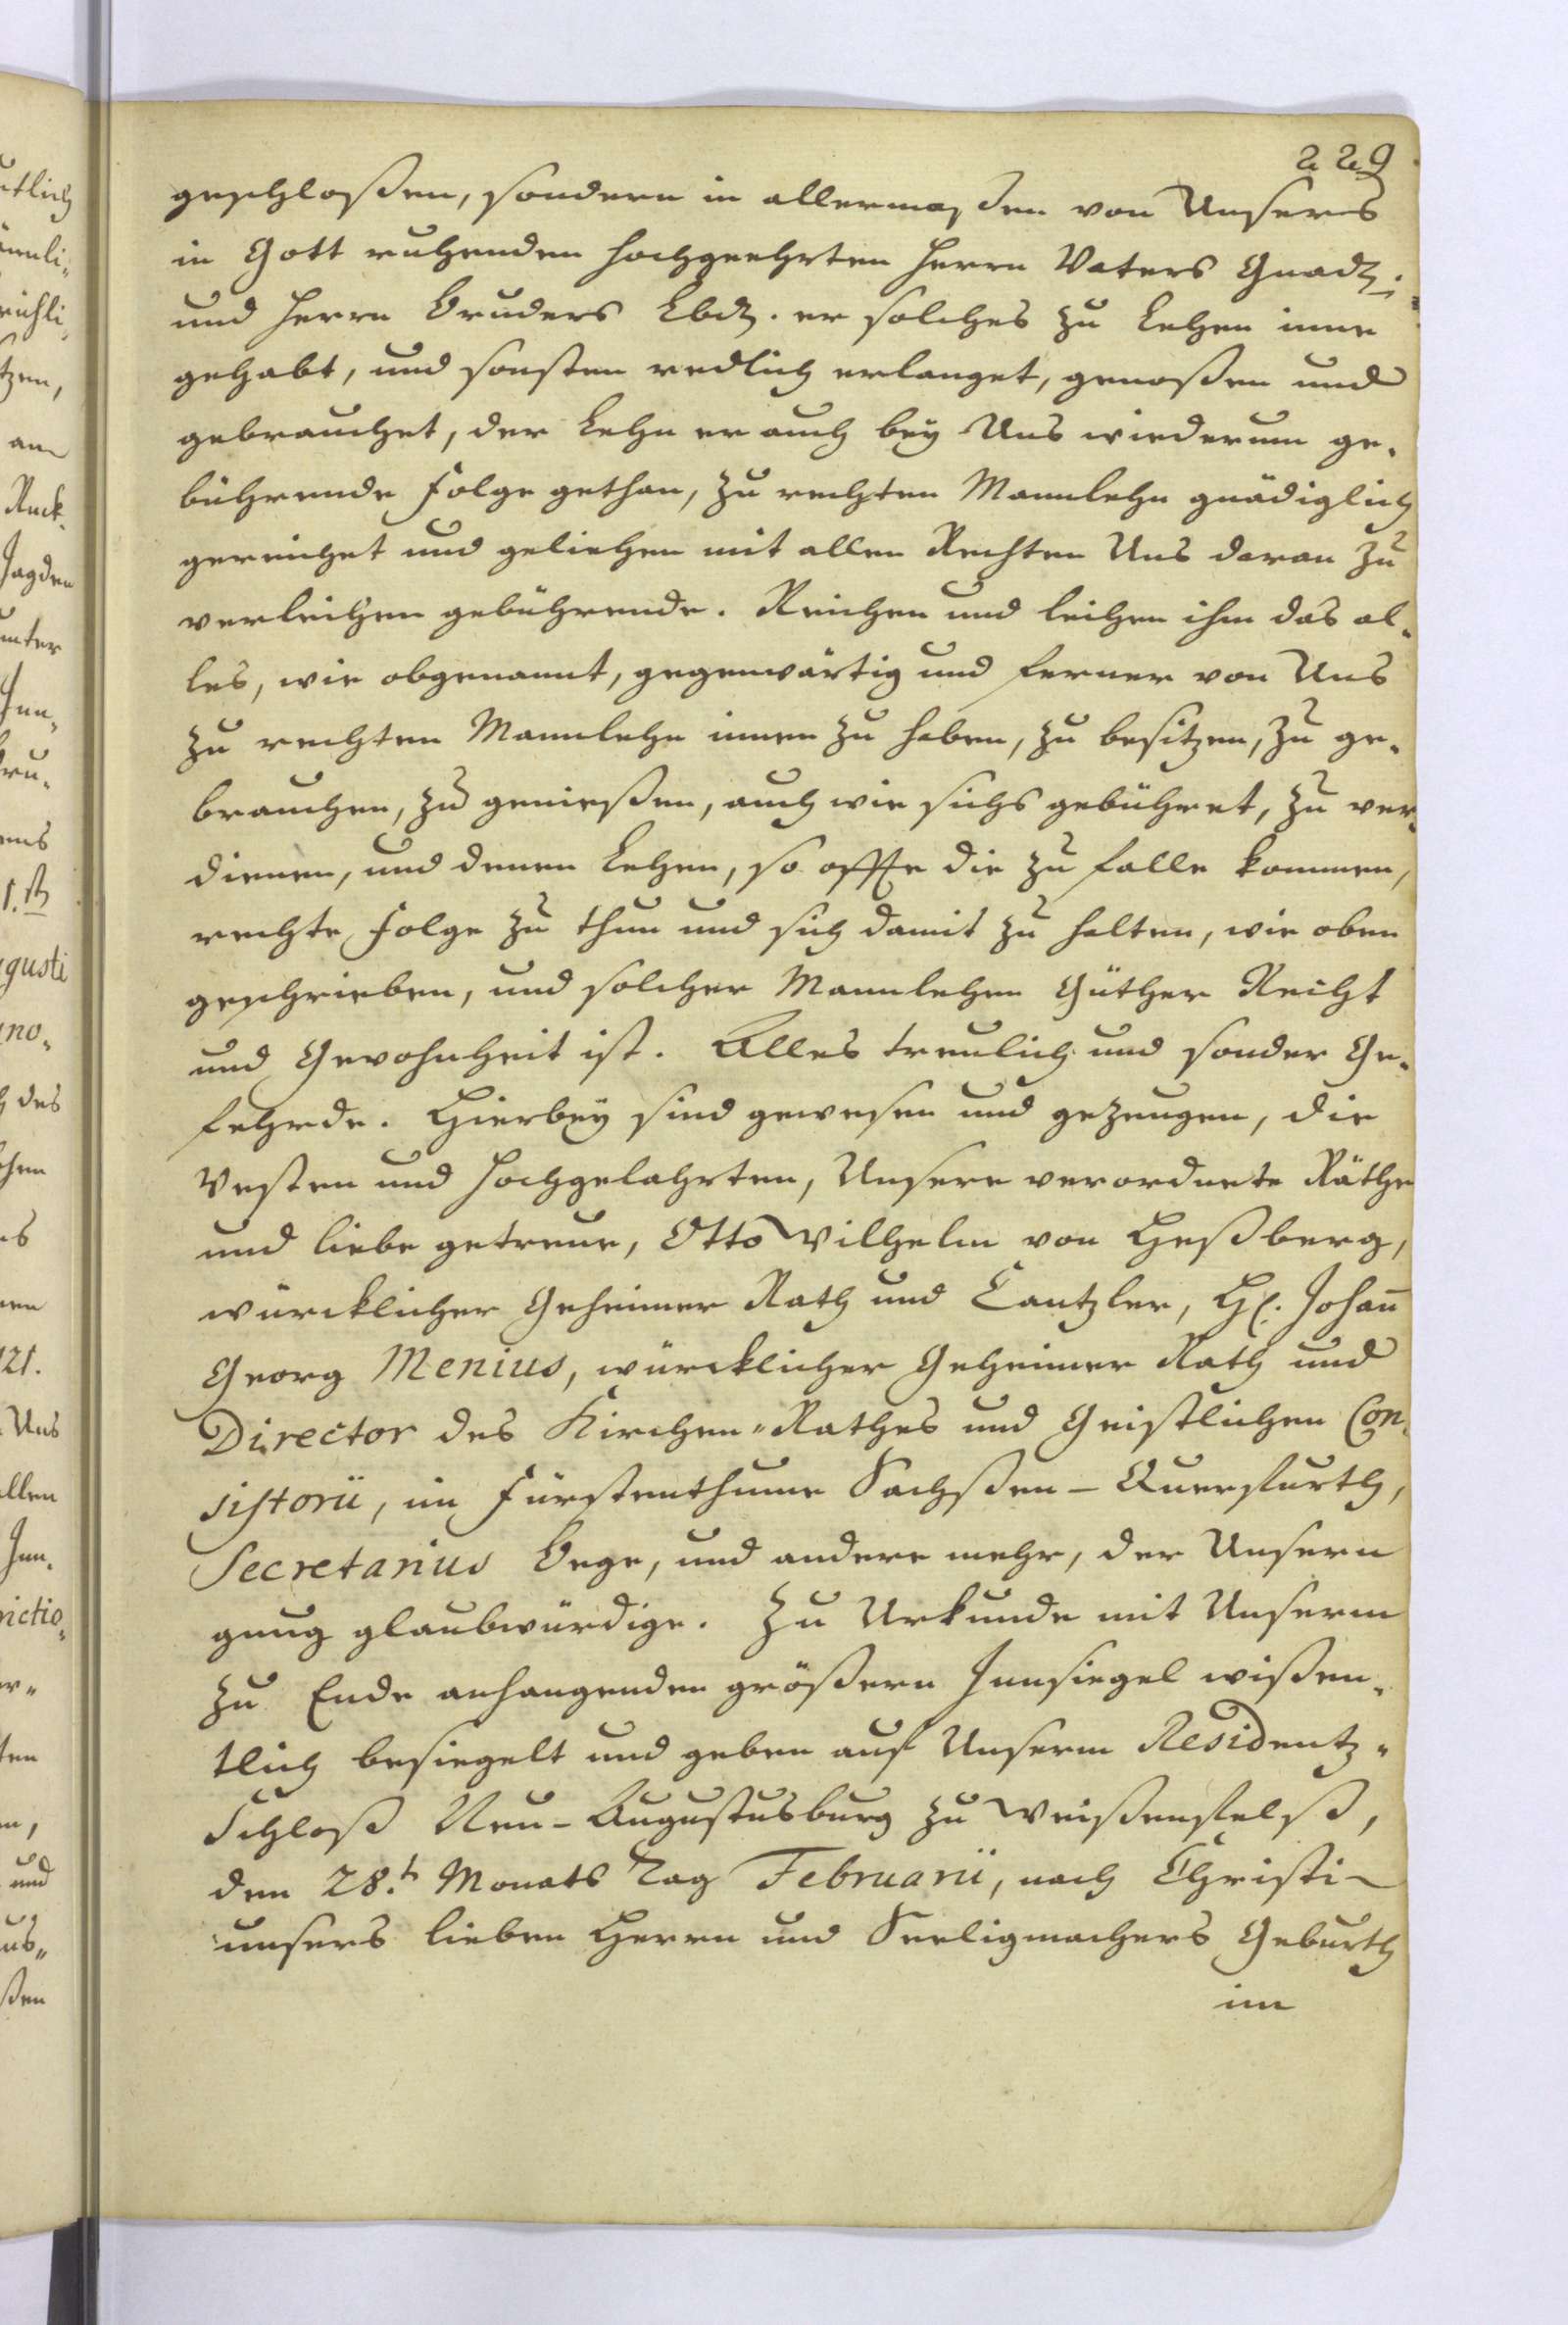 229
geschloßen, sondern in allermaßen von Unsers
in Gott ruhenden hochgeehrten Herrn Vaters Gnadꝫ.
und Herrn Bruders Lbdꝫ. er solches zu Lehen inne
gehabt, und sonsten redlich erlanget, genoßen und
gebrauchet, der Lehn er auch bey Uns wiederum ge-
bührende Folge gethan, zu rechten Mannlehn gnädiglich
gereichet und geliehen mit allen Rechten Uns daran zu
verleihen gebührende. Reichen und leihen ihm das al-
les, wie obgenannt, gegenwärtig und ferner von Uns
zu rechten Mannlehn innen zu haben, zu besitzen, zu ge-
brauchen, zu genießen, auch wie sichs gebühret, zu ver-
dienen, und denen Lehen, so offte die zu falle kommen,
rechte Folge zu thun und sich damit zu halten, wie oben
geschrieben, und solcher Mannlehen Güther Recht
und Gewohnheit ist. Alles treulich und sonder Ge-
fehrde. Hierbey sind gewesen und gezeugen, die
Vesten und Hochgelahrten, Unsere verordnete Räthe
und liebe getreue, Otto Wilhelm von Heßberg,
würcklicher Geheimer Rath und Cantzler, H. Johan̄
Georg Menius, würcklicher Geheimer Rath und
Director des Kirchen-Rathes und Geistlichen Con-
sistorii, im Fürstenthume Sachßen-Querfurth,
Secretarius Bege, und andere mehr, der Unsern
gnug glaubwürdige. Zu Urkunde mit Unserm
zu Ende anhangenden größern Innsiegel wißen-
tlich besiegelt und geben auf Unserm Residentz-
Schloß Neu-Augustusburg zu Weißenfelß,
den 28.t Monats Tag Februarii, nach Christi
unsers lieben Herrn und Seeligmachers Geburth
im